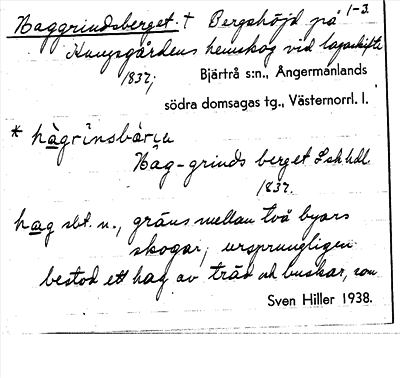 Haggrindsberget. † Bergshöjd på 1-3.
Kungsgårdens hemskog vid lagaskifte
1837;
Bjärtrå s:n., Ångermanlands
södra domsagas tg., Västernorrl. l.
* hàgrìnsbàrjɯ
Hag-grinds berget Lskhdl.
1837.
hag sbt. n., gräns mellan två byars
skogar, ursprungligen
bestod ett hag av träd och buskar, som
Sven Hiller 1938.